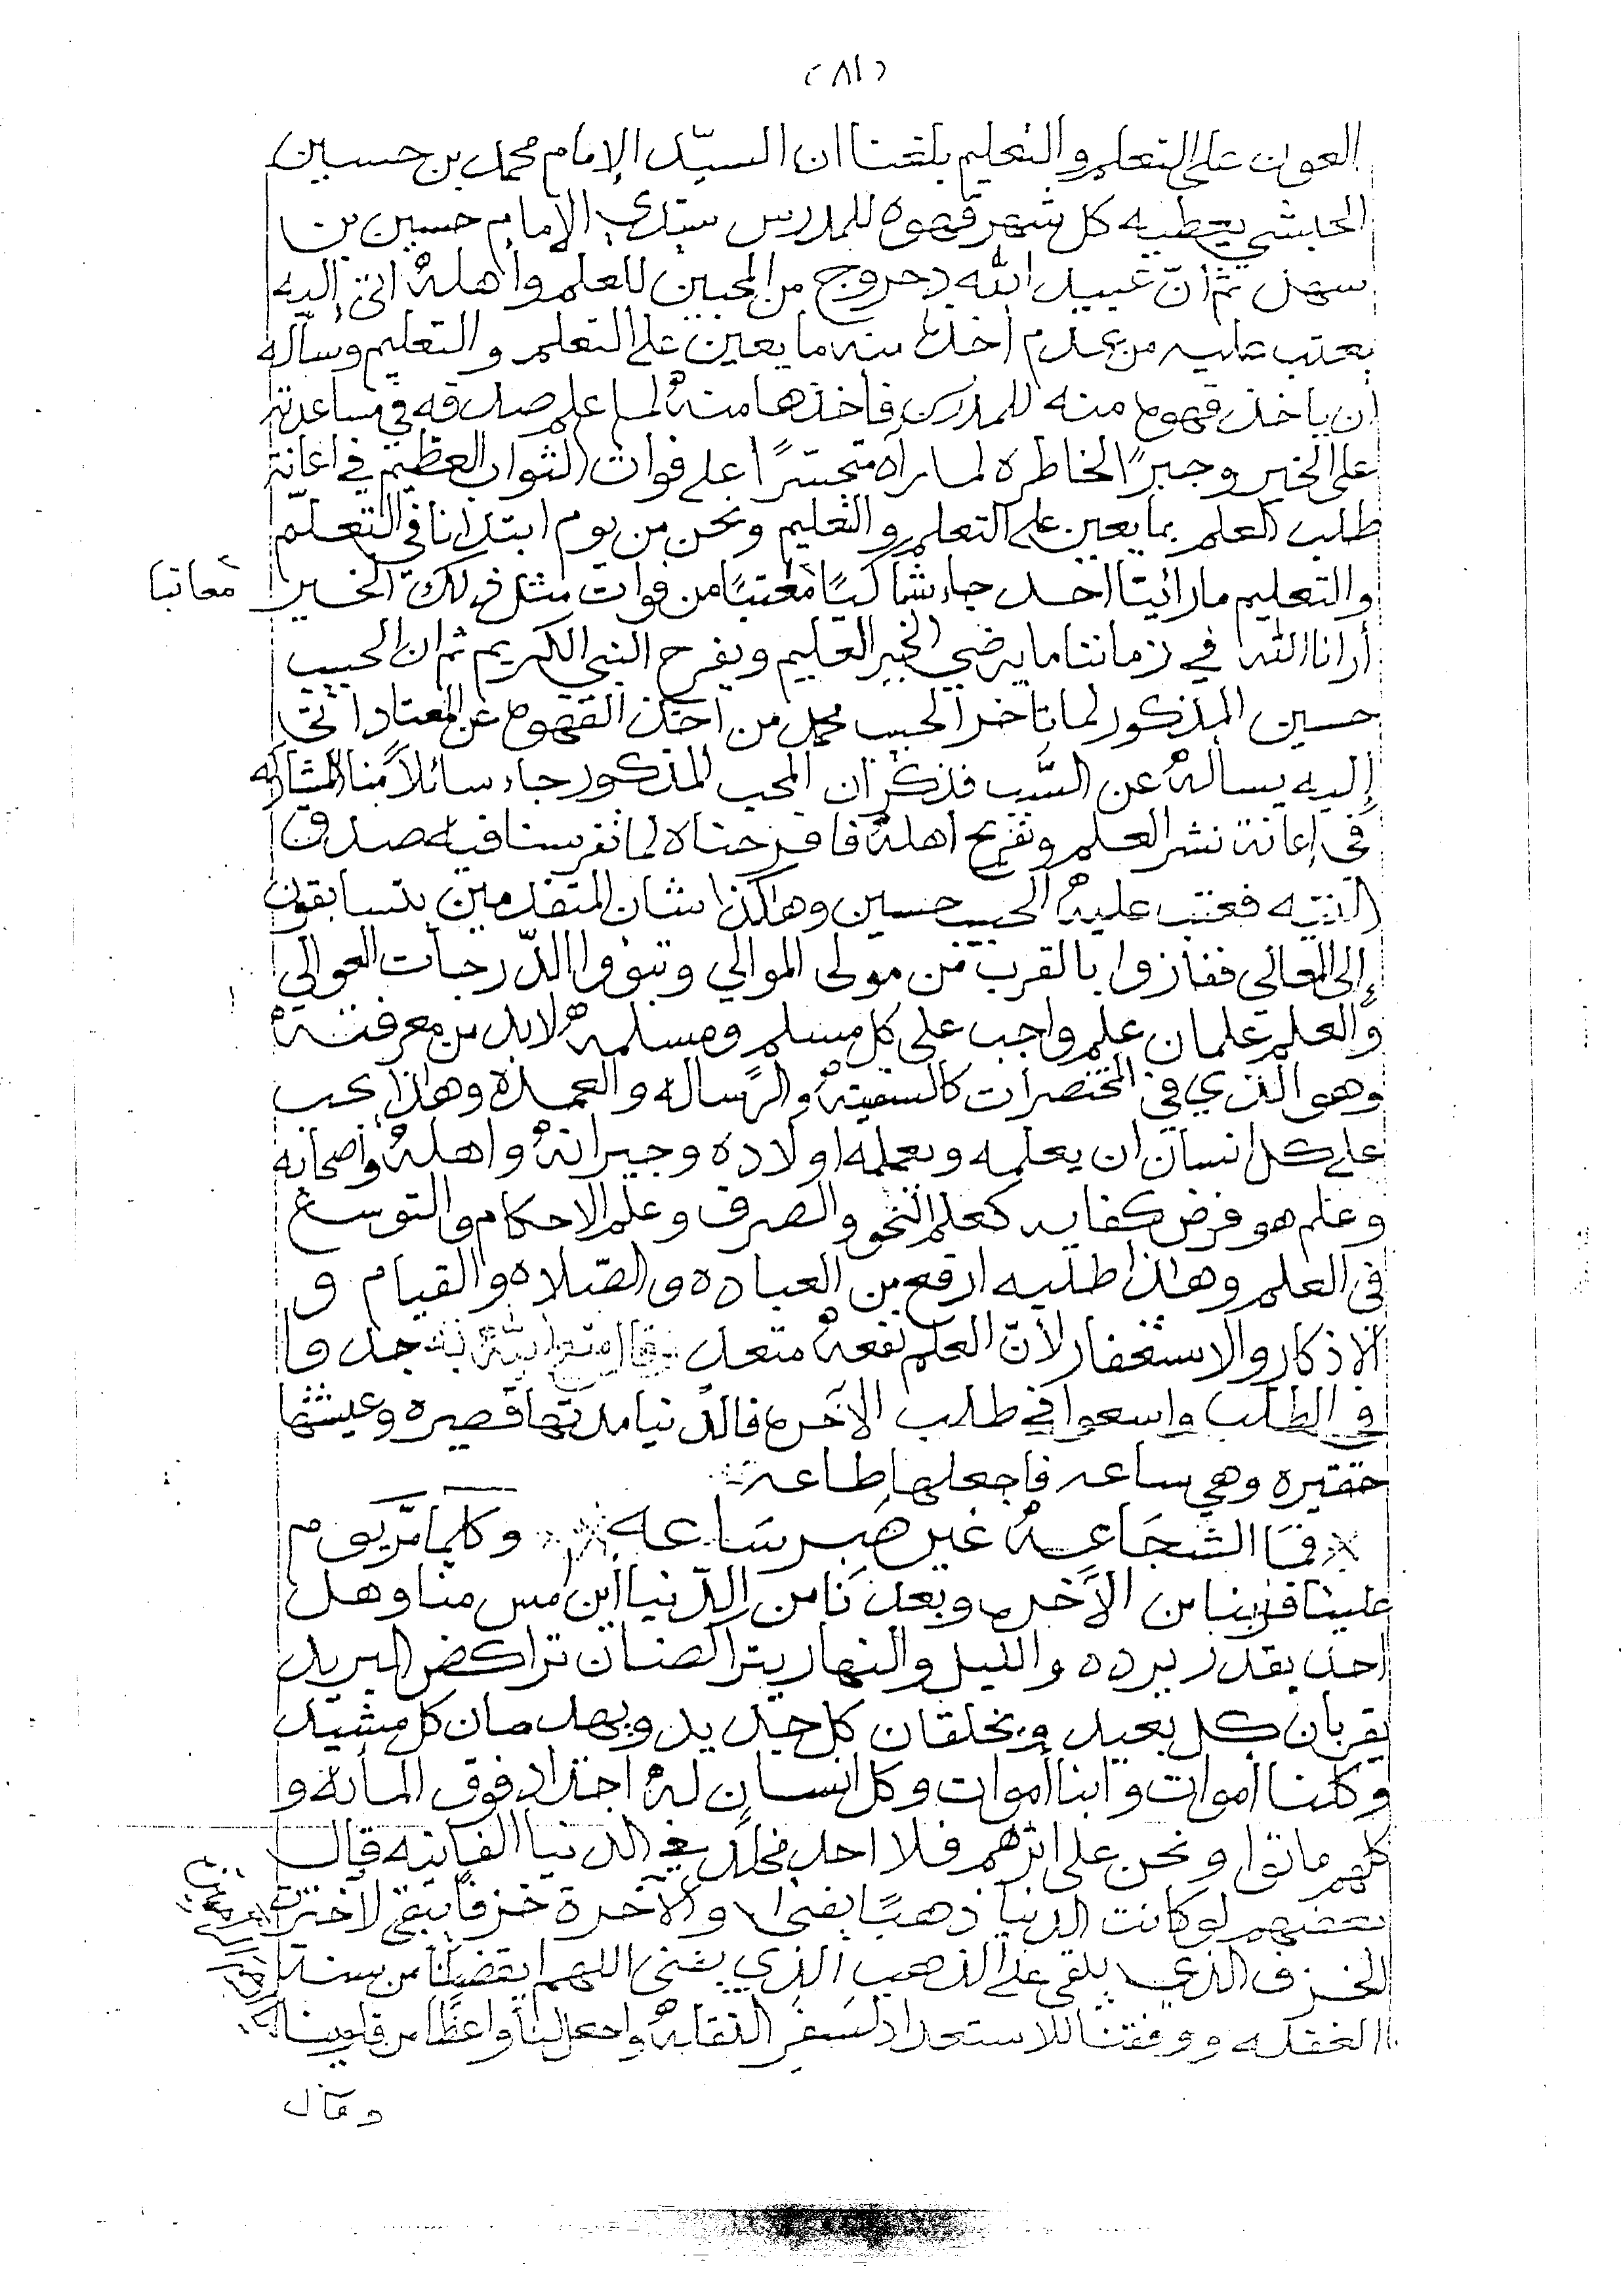 (٨١)
العون على التعلم والتعليم بلغنا ان السيّد الإمام محمد بن حسين
الحبشي يعطيه كل شهر قهوه للمدرس سيدي الإمام حسين بن
سهل ثم أنّ عبيد الله دحروج من المحبين للعلم وأهلهُ اتى إليه
يعتب عليه من عدم أخذ منه ما يعين على التعلم والتعليم وسأله
ان ياخذ قهوه منه للمدرس فاخذها منهُ لما علم صدقه في مساعدته
على الخير وجبرًا لخاطره لما رآه متحسّرًا على فوات الثواب العظيم في اعانة
طلب العلم بما يعين على التعلم والتعليم ونحن من يوم ابتدانا في التعلّم
والتعليم مارائينا احد جاء شاكيًا معتبًا من فوات مثل ذلك الخير معاتبا
أرانا الله في زماننا ما يرضي الخبير العليم ويفرح النبي الكريم ثم ان الحبيب
حسين المذكور لما تاخر الحبيب محمد من اخذ القهوه عن المعتاد اتى
إليه يسالهُ عن السَّبب فذكر أن المحب المذكور جاء سائلاً منا المشاركه
في إعانة نشر العلم وتفريح اهلهُ فافرحناه لما تفرسنا فيه صدق
النيّه فعتب عليهُ الحبيب حسين وهاكذا شان المتقدمين يتسابقون
إلى المعالي ففازوا بالقرب من مولى الموالي وتبوّوا الدّرجات العوالي
والعلم علمان علم واجب على كل مسلم ومسلمهْ لابد من معرفتهُ
وهو الذي في المختصرات كالسفينهْ والرّساله والعمده وهاذا يجب
على كل انسان ان يعلمه ويعلمه اولاده وجيرانهُ واهلهُ وأصحابه
وعلم هو فرض كفايه كعلم النحو والصرف وعلم الاحكام والتوسع
في العلم وهاذا طلبه ارفع من العباده والصّلاه والقيام و
الاذكار والاستغفار لأنّ العلم نفعهُ متعد جدوا
في الطلب واسعوا في طلب الآخره فالدّنيا مدتها قصيره وعيشتها
حقيره وهي ساعه فاجعلها طاعه
فمَا الشجَاعهُ غير صَبر سَاعه وكلّما مَرّ يوم
علينا قرّبنا من الآخره وبعدَنَا من الدّنيا اين امس منا وهل
احد يقدر يرده والليل والنهار يتراكضان تراكض البريد
يقربان كل بعيد ويخلقان كل جديد ويهدمان كل مشيد
وكلنا أموات وابنا أموات وكل انسان لهُ اجداد فوق المائة و
كلهم ماتوا ونحن على اثرهم فلا احد مخلّد في الدنيا الفانيه قال
بعضهم لو كانت الدنيا ذهبًا يفنى والآخرة خزفًا يبقى لاخترت
الخزف الذي يبقى على الذهب الذي يفنى اللهم ايقضنا من سنة
الغفله ووفقنا للاستعداد لسفر النقلهُ واجعل لنا واعظًا من قلوبنا
وقال